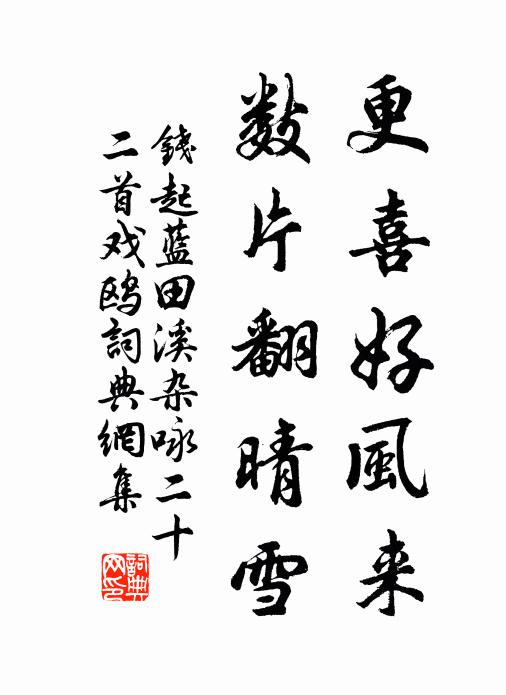 更喜好風来
数片翻晴雪
錢起藍田溪杂咏二十
二首戏鸥詞典網集
詞典
网印